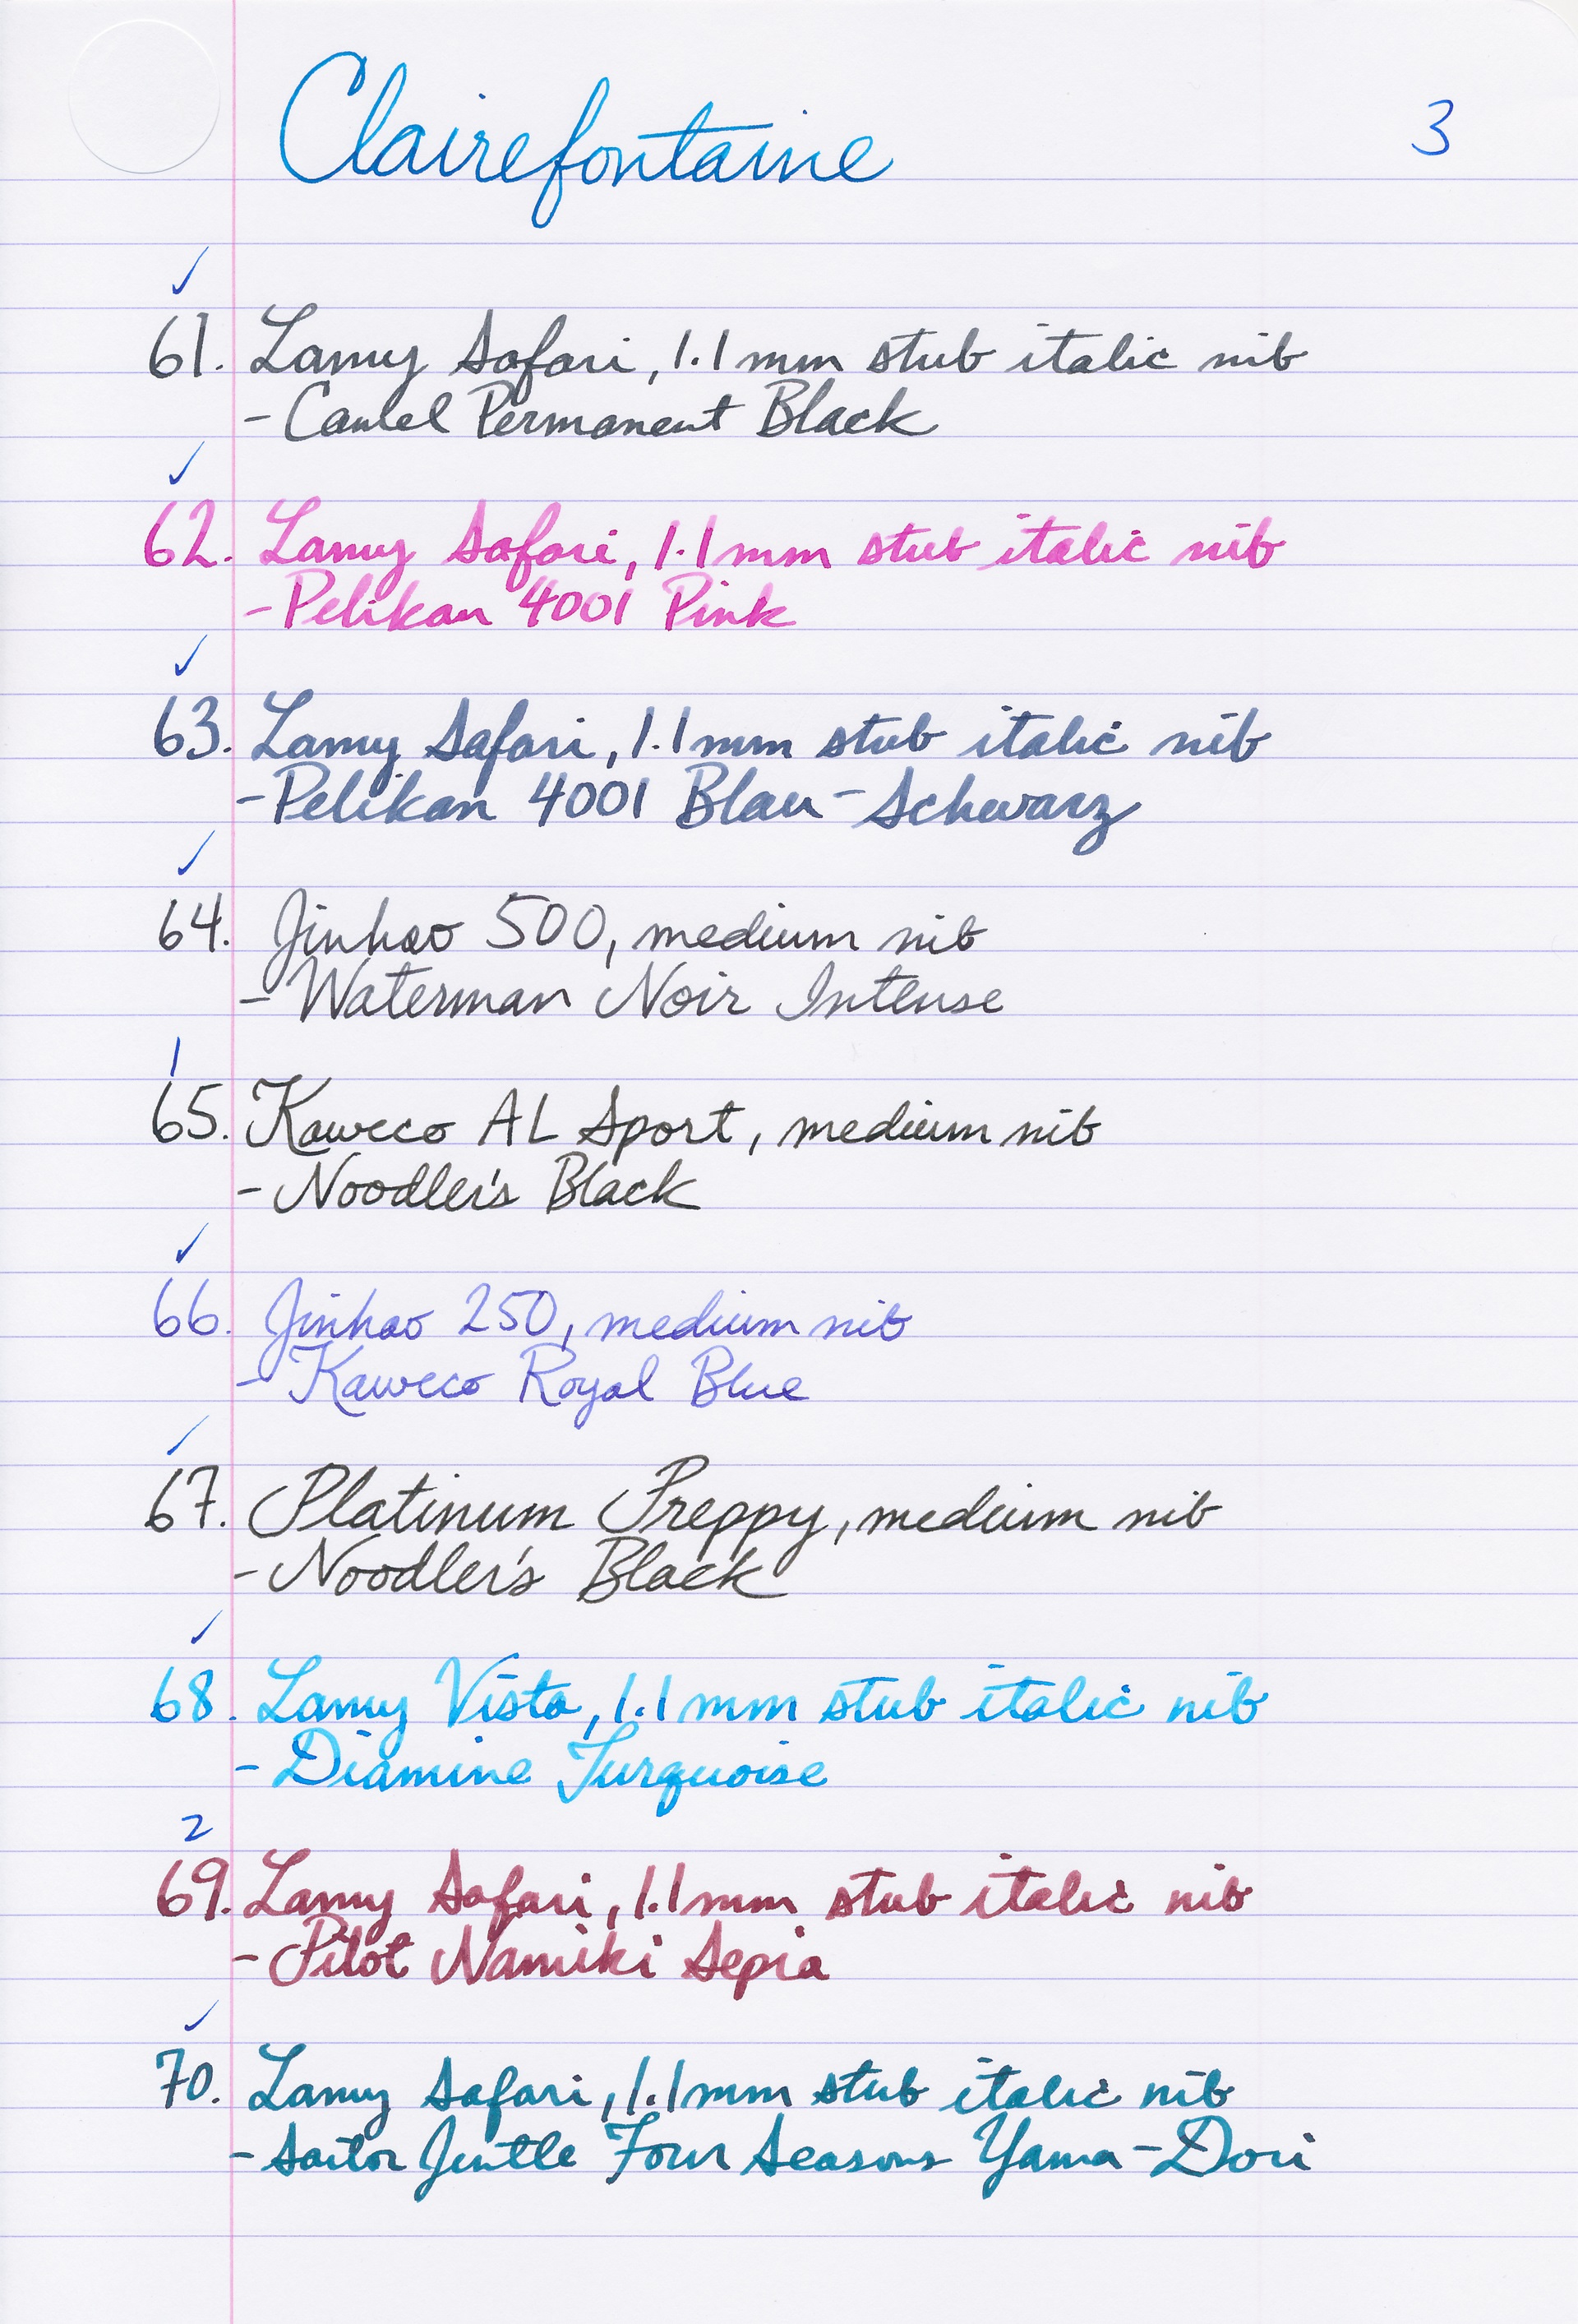 Clairefontaine
3
✓
61. Lamy Safari, 1.1mm stub italic nib
- Camel Permanent Black
✓
62. Lamy Safari, 1.1mm stub italic nib
- Pelikan 4001 Pink
✓
63. Lamy Safari, 1.1mm stub italic nib
- Pelikan 4001 Blau-Schwarz
✓
64. Jinhao 500, medium nib
- Waterman Noir Intense
1
65. Kaweco AL Sport, medium nib
- Noodler's Black
✓
66. Jinhao 250, medium nib
- Kaweco Royal Blue
✓
67. Platinum Preppy, medium nib
- Noodler's Black
✓
68. Lamy Vista, 1.1mm stub italic nib
- Diamine Turquoise
2
69. Lamy Safari, 1.1mm stub italic nib
- Pilot Namiki Sepia
✓
70. Lamy Safari, 1.1mm stub italic nib
- Sailor Jentle Four Seasons Yama-Dori